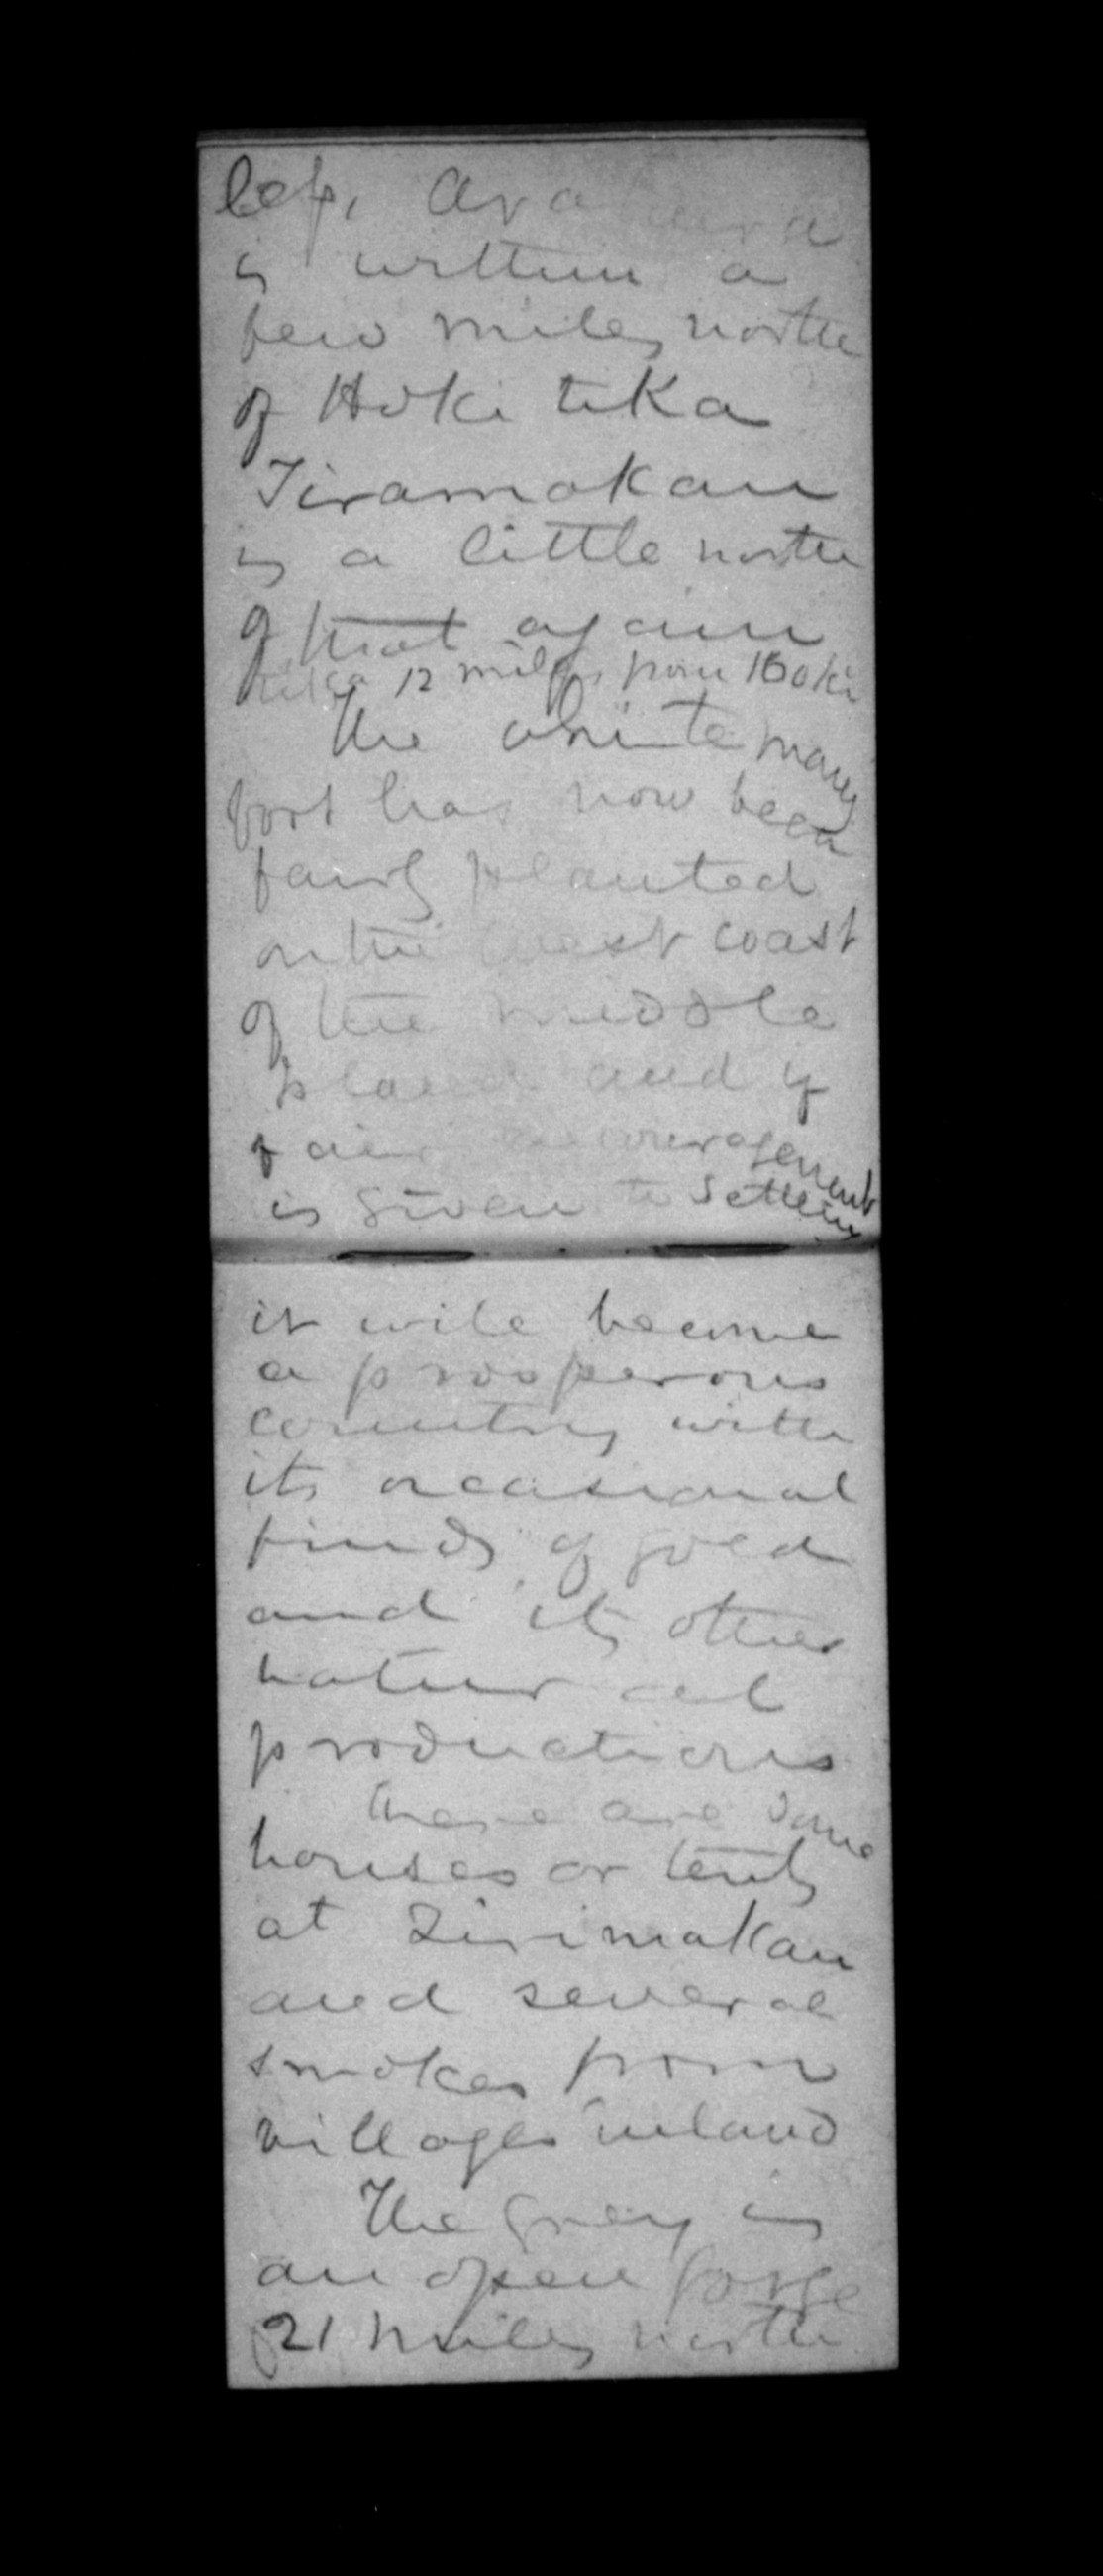 left, Arahura
is within a
few miles north
of Hoki tika
Tiramakau
is a little north
of that again
tika 12 miles from Hoki
The white mans
foot has now been
fairly planted
on the west coast
of the middle
Island and if
fair encouragement
is given to settlers
it will become
a prosperous
country with
its occasional
finds of gold
and its other
natural
productions
There are some
houses or tents
at Tirimakau
and several
smokes from
villages inland
The Grey is
an open gorge
21 miles north